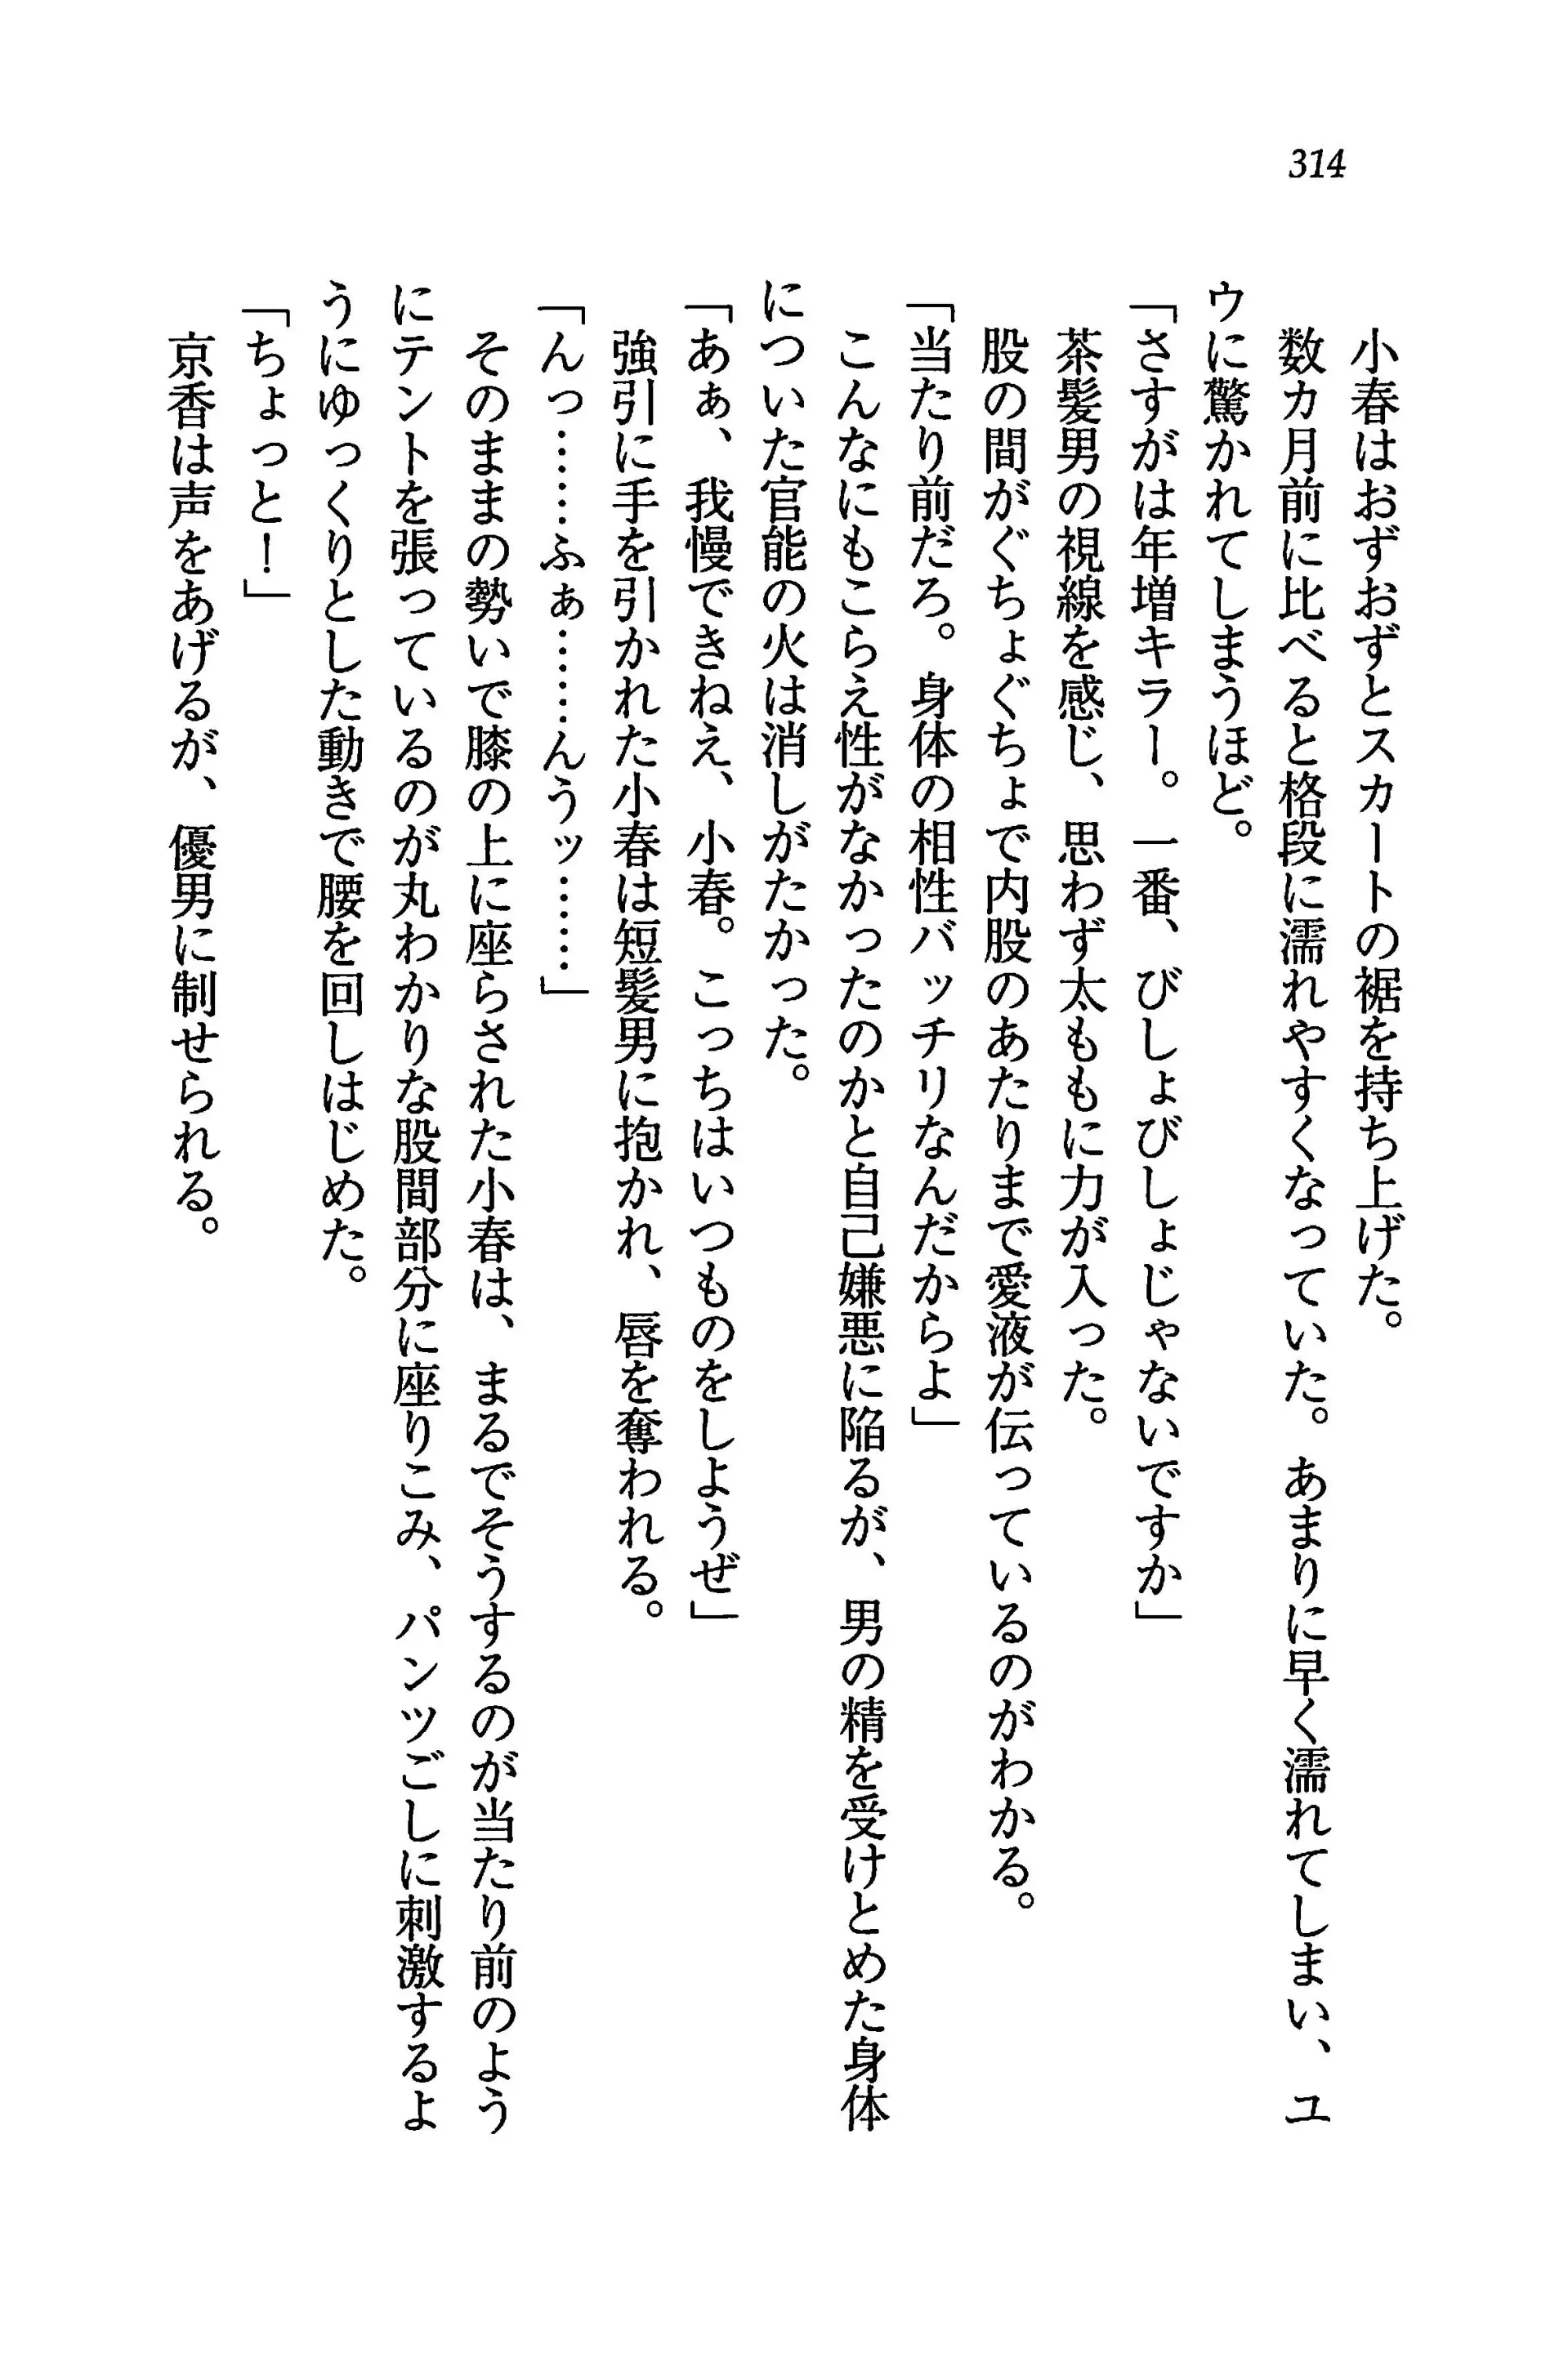 314
小春はおずおずとスカートの裾を持ち上げた。
数カ月前に比べると格段に濡れやすくなっていた。あまりに早く濡れてしまい、ユ
ウに驚かれてしまうほど。
「さすがは年増キラー。一番、びしょびしょじゃないですか」
茶髪男の視線を感じ、思わず太ももに力が入った。
股の間がぐちょぐちょで内股のあたりまで愛液が伝っているのがわかる。
「当たり前だろ。身体の相性バッチリなんだからよ」
こんなにもこらえ性がなかったのかと自己嫌悪に陥るが、男の精を受けとめた身体
についた官能の火は消しがたかった。
「あぁ、我慢できねえ、小春。こっちはいつものをしようぜ」
強引に手を引かれた小春は短髪男に抱かれ、唇を奪われる。
「んっ……ふぁ……んうッ……」
そのままの勢いで膝の上に座らされた小春は、まるでそうするのが当たり前のよう
にテントを張っているのが丸わかりな股間部分に座りこみ、パンツごしに刺激するよ
うにゆっくりとした動きで腰を回しはじめた。
「ちょっと！」
京香は声をあげるが、優男に制せられる。